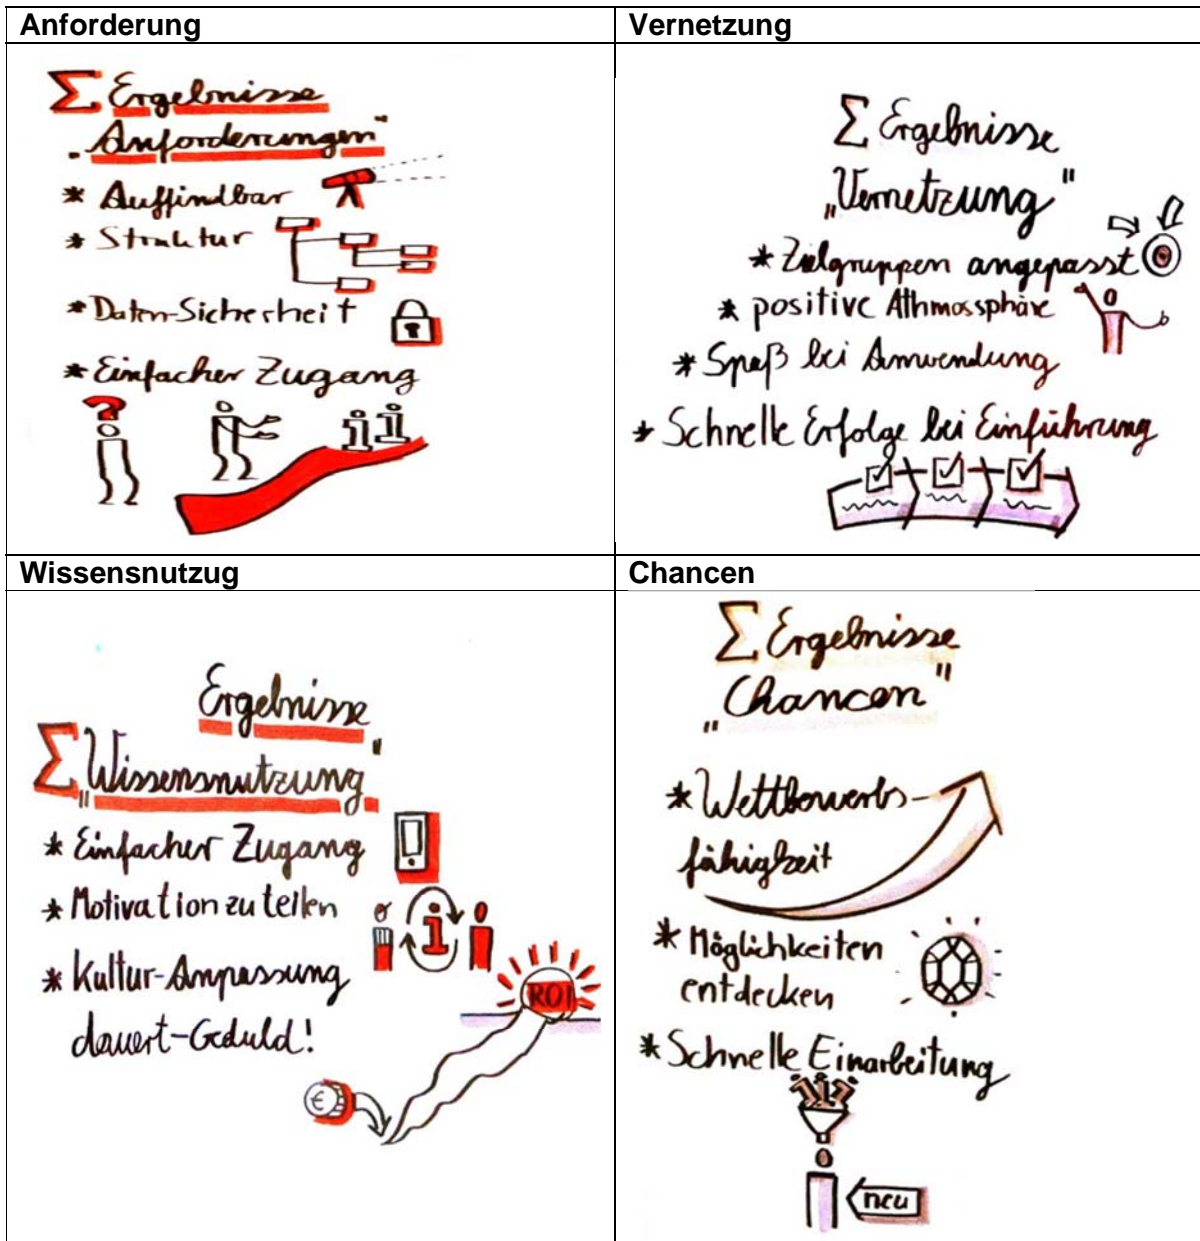 Anforderung
Σ Ergebnisse
"Anforderungen"
* Auffindbar
* Struktur
* Daten-Sicherheit
* Einfacher Zugang
?
i i
Vernetzung
Σ Ergebnisse
„Vernetzung"
* Zielgruppen angepasst
* positive Athmossphäre
* Spaß bei Anwendung
* Schnelle Erfolge bei Einführung
Wissensnutzug
Ergebnisse
Σ „Wissensnutzung"
* Einfacher Zugang
* Motivation zu teilen
i
* Kultur-Anpassung
dauert-Geduld!
ROI
€
Chancen
Σ Ergebnisse
„Chancen"
* Wettbewerbs-
fähigkeit
* Möglichkeiten
entdecken
* Schnelle Einarbeitung
neu